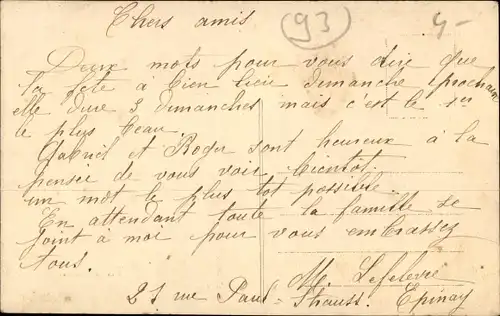 Chers amis
(93)
4-
Deux mots pour vous dire que
la fete à bien lieu dimanche prochain
elle dure 3 dimanches mais c'est le 1er
le plus beau.
Gabriel et Roger sont heureux à la
pensée de vous voir bientôt.
un mot le plus tot possible.
En attendant toute la famille se
joint à moi pour vous embrassez
tous.
Me Lefebvre
21 rue Paul Strauss. Epinay